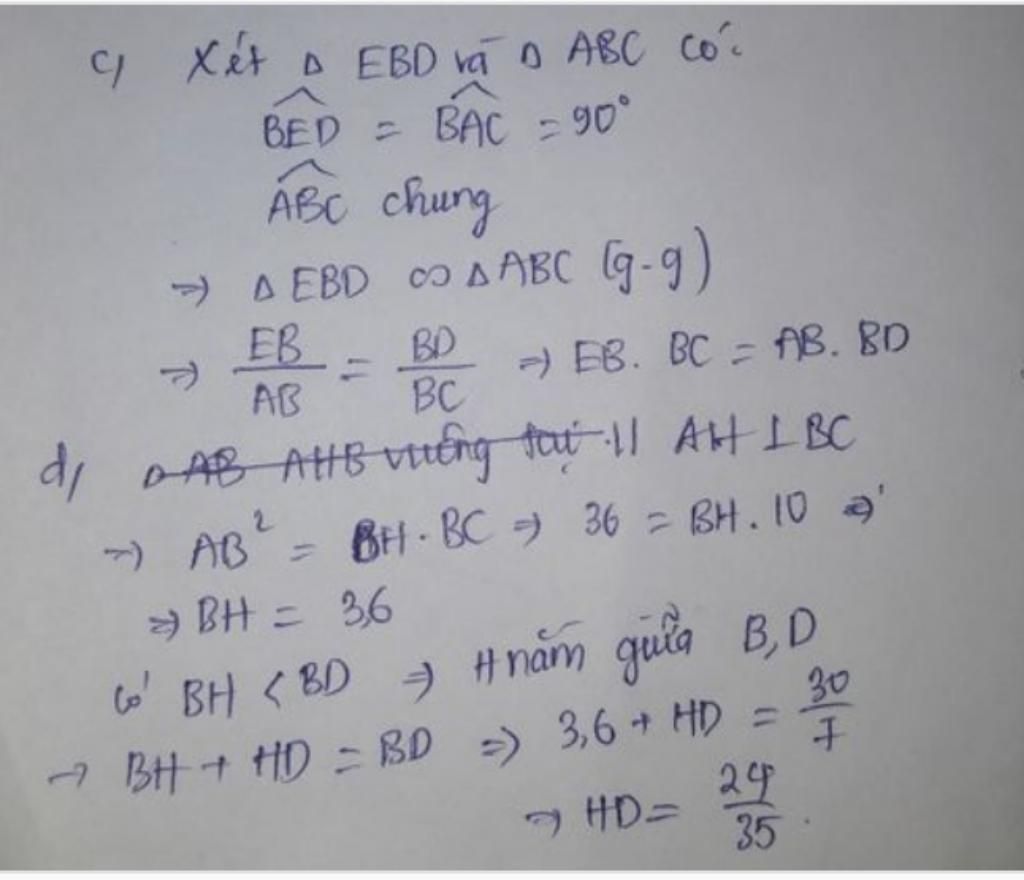 c) Xét Δ EBD và Δ ABC có:
$\widehat{BED}$ = $\widehat{BAC}$ = 90°
$\widehat{ABC}$ chung
⇒ Δ EBD ∽ Δ ABC (g-g)
⇒ $\frac{EB}{AB}$ = $\frac{BD}{BC}$ ⇒ EB. BC = AB. BD
d) ~~Δ AB AHB vuông tại~~ AH ⊥ BC
⇒ AB² = BH . BC ⇒ 36 = BH . 10 ⇒
⇒ BH = 3,6
Có BH < BD ⇒ H nằm giữa B, D
→ BH + HD = BD ⇒ 3,6 + HD = $\frac{30}{7}$
⇒ HD = $\frac{24}{35}$.